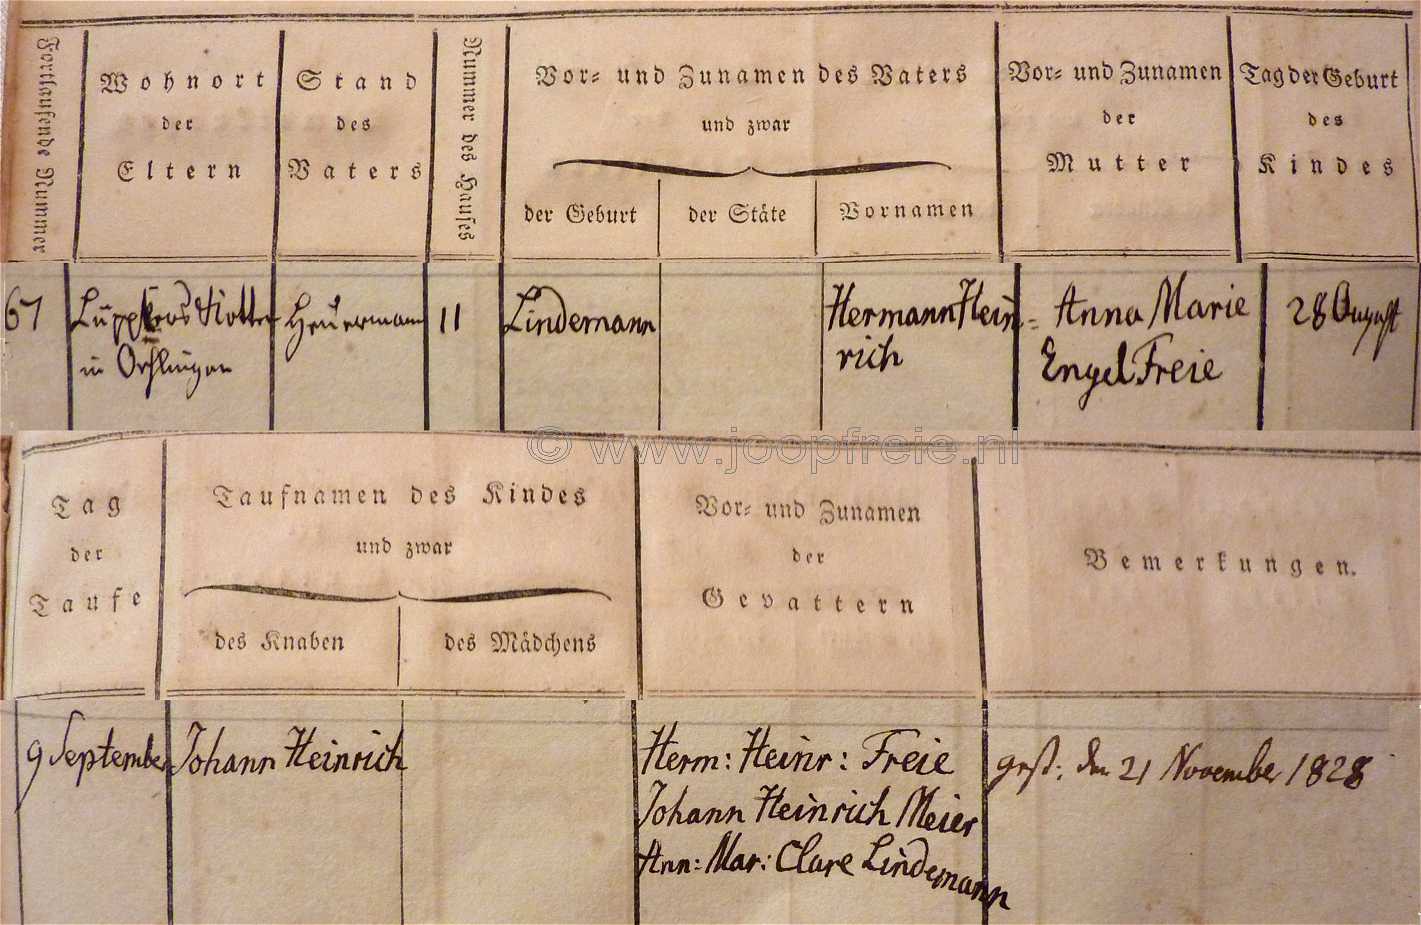 Fortlaufende Nummer
Wohnort
der
Eltern
Stand
des
Vaters
Nummer des Hauses
Vor- und Zunamen des Vaters
und zwar
der Geburt
der Stäte
Vornamen
Vor- und Zunamen
der
Mutter
Tag der Geburt
des
Kindes
67
Lüppkers Kotten
in Oesslingen
Heuermann
11
Lindemann
Hermann Hein-
rich
Anna Marie
Engel Freie
28 August
© www.joopfreie.nl
Tag
der
Taufe
Taufnamen des Kindes
und zwar
des Knaben
des Mädchens
Vor- und Zunamen
der
Gevattern
Bemerkungen.
9 September
Johann Heinrich
Herm: Heinr: Freie
Johann Heinrich Meier
Ann: Mar: Clare Lindemann
gest: den 21 November 1828